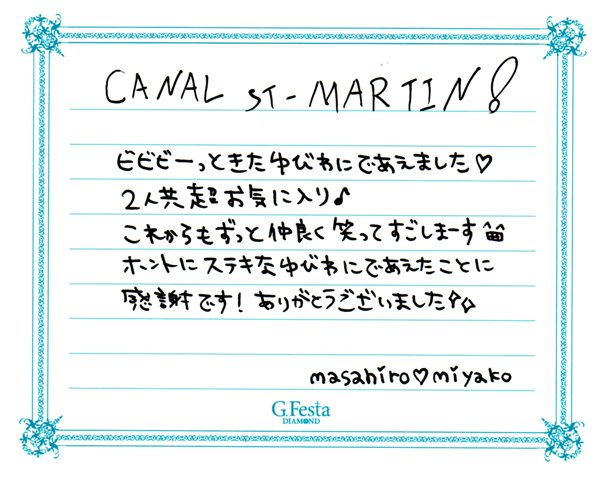 CANAL ST-MARTIN!
ビビビーっときたゆびわにであえました♡
2人共超お気に入り♪
これからもずっと仲良く笑ってすごしまーす^^
ホントにステキなゆびわにであえたことに
感謝です!ありがとうございました✧✧
masahiro♡miyako
G.Festa
DIAMOND